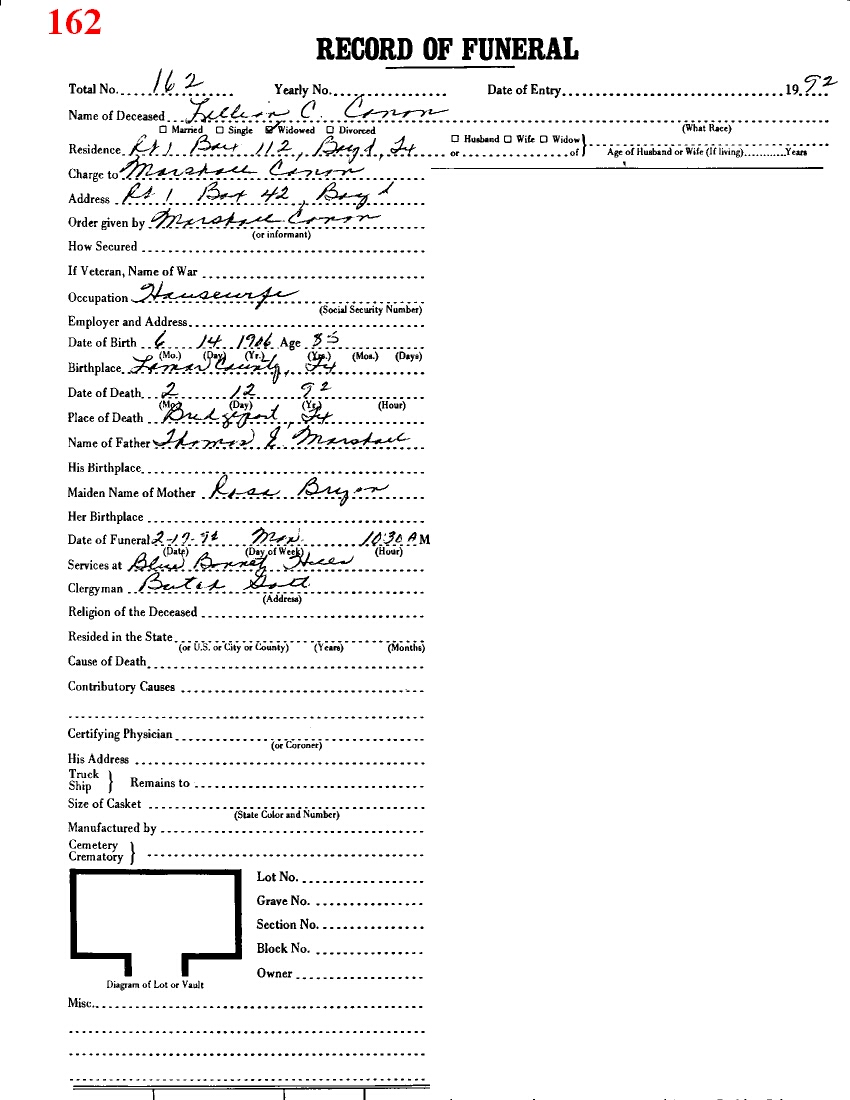 162
RECORD OF FUNERAL
Total No. 162 Yearly No. Date of Entry 1992
Name of Deceased Lillian C. Conon
(What Race)
☐ Married ☐ Single ☑ Widowed ☐ Divorced
☐ Husband ☐ Wife ☐ Widow }
Residence Rt 1 Box 112, Boyd, Tx or of } Age of Husband or Wife (If living) Years
Charge to Marshall Conon
Address Rt 1 Box 42, Boyd
Order given by Marshall Conon
(or informant)
How Secured
If Veteran, Name of War
Occupation Housewife
(Social Security Number)
Employer and Address
Date of Birth 6 14 1906 Age 85
(Mo.) (Day) (Yr.) (Yrs.) (Mos.) (Days)
Birthplace Lamar County, Tx
Date of Death 2 12 92
(Mo.) (Day) (Yr.) (Hour)
Place of Death Bridgeport, Tx
Name of Father Thomas J. Marshall
His Birthplace
Maiden Name of Mother Rosa
Her Birthplace
Date of Funeral 2-17-92 Mon. 10:30 AM
(Date) (Day of Week) (Hour)
Services at Blue Bonnet Hills
Clergyman Butch
(Address)
Religion of the Deceased
Resided in the State
(or U.S. or City or County) (Years) (Months)
Cause of Death
Contributory Causes
Certifying Physician
(or Coroner)
His Address
Truck
Ship } Remains to
Size of Casket
(State Color and Number)
Manufactured by
Cemetery
Crematory }
Lot No.
Grave No.
Section No.
Block No.
Owner
Diagram of Lot or Vault
Misc.